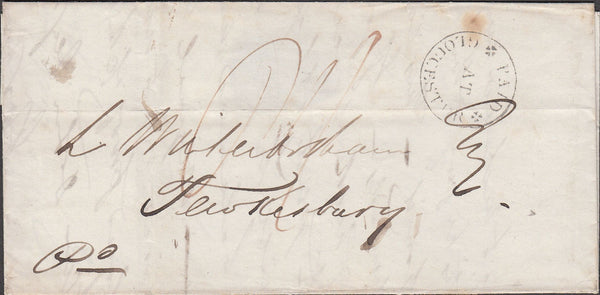 PAID AT GLOUCESTER
L Winterbotham Esq
Tewkesbury.
Pd